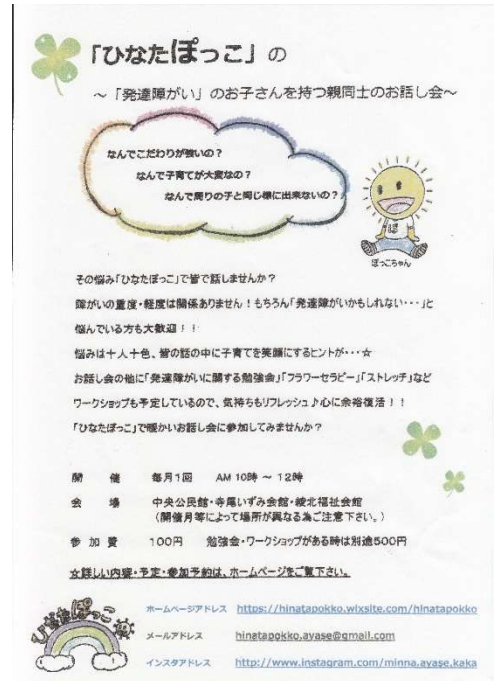 「ひなたぽっこ」の
～「発達障がい」のお子さんを持つ親同士のお話し会～
なんでこだわりが強いの？
なんで子育てが大変なの？
なんで周りの子と同じ様に出来ないの？
ぽ
ぽっこちゃん
その悩み「ひなたぽっこ」で皆で話しませんか？
障がいの重度・軽度は関係ありません！もちろん「発達障がいかもしれない・・・」と
悩んでいる方も大歓迎！！
悩みは十人十色、皆の話の中に子育てを笑顔にするヒントが・・・☆
お話し会の他に「発達障がいに関する勉強会」「フラワーセラピー」「ストレッチ」など
ワークショップも予定しているので、気持ちもリフレッシュ♪心に余裕復活！！
「ひなたぽっこ」で暖かいお話し会に参加してみませんか？
開　催　毎月1回　AM 10時 ～ 12時
会　場　中央公民館・寺尾いずみ会館・綾北福祉会館
（開催月等によって場所が異なる為ご注意下さい。）
参 加 費　100円　勉強会・ワークショップがある時は別途500円
☆詳しい内容・予定・参加予約は、ホームページをご覧下さい。
ひなたぽっこ
ホームページアドレス　https://hinatapokko.wixsite.com/hinatapokko
メールアドレス　hinatapokko.ayase@gmail.com
インスタアドレス　http://www.instagram.com/minna.ayase.kaka